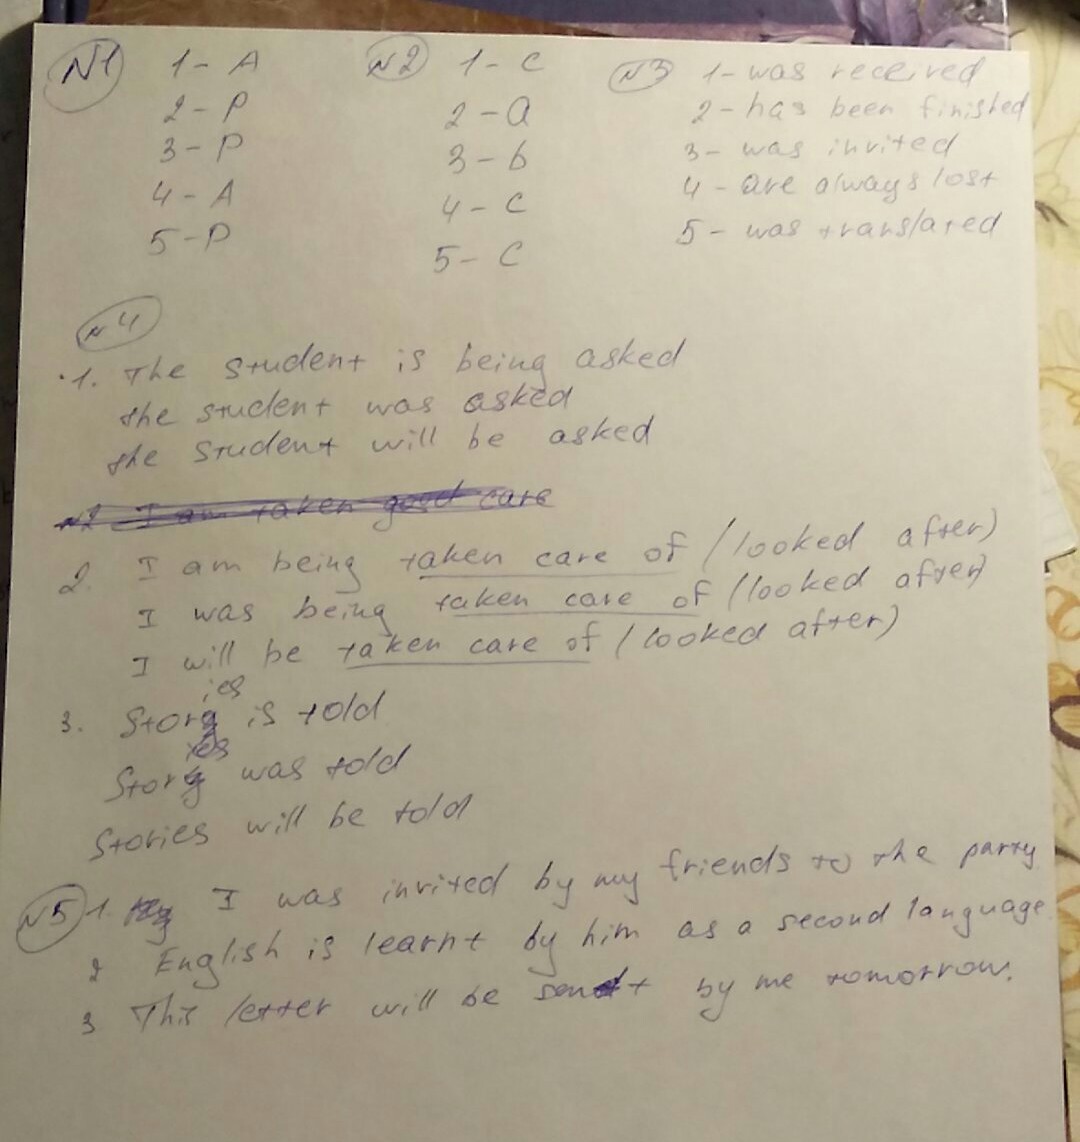 N1 1- A
2- P
3- P
4- A
5- P
N2 1- C
2- a
3- b
4- C
5- C
N3 1- was received
2- has been finished
3- was invited
4- are always lost
5- was translated
N4
1. The student is being asked
the student was asked
the student will be asked
N2 I am taken good care
2. I am being taken care of / looked after)
I was being taken care of / (looked after)
I will be taken care of / looked after)
3. Stories is told
Stories was told
Stories will be told
N5 1. I was invited by my friends to the party
2 English is learnt by him as a second language.
3 This letter will be sent by me tomorrow.